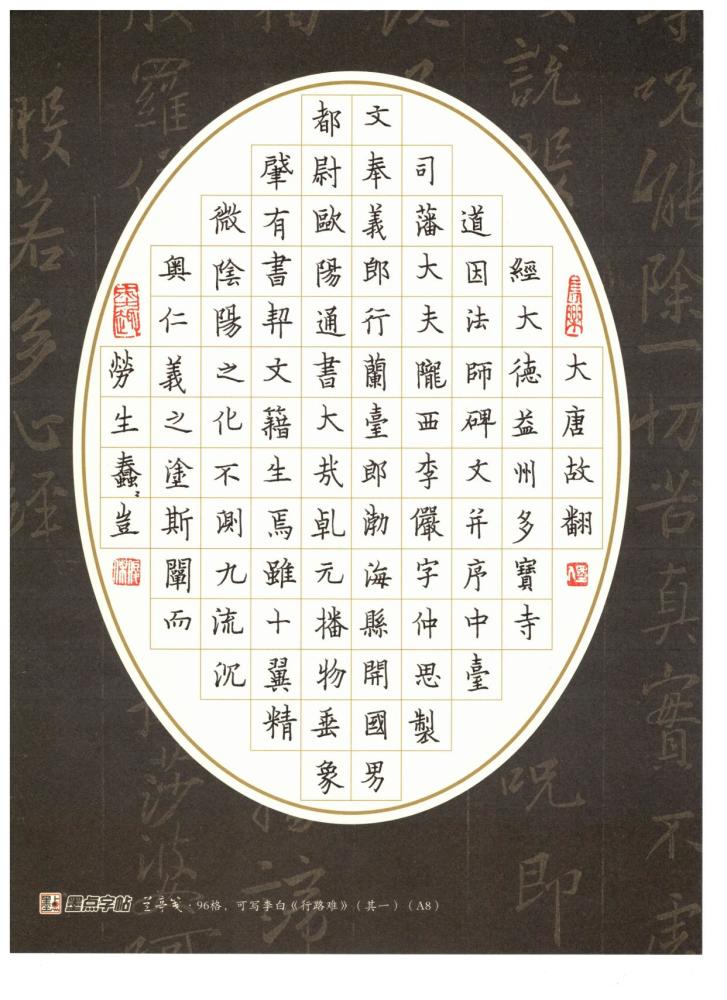 大唐故翻
經大德益州多寶寺
道因法師碑文并序中臺
司藩大夫隴西李儼字仲思製
文奉義郎行蘭臺郎渤海縣開國男
都尉歐陽通書大哉乹元播物垂象
肇有書契文籍生焉雖十翼精
微陰陽之化不測九流沉
奥仁義之塗斯闡而
勞生蠢〻豈
等咒能除一切苦真實不虛
般若多心經
墨点字帖 兰亭笺·96格，可写李白《行路难》（其一）（A8）